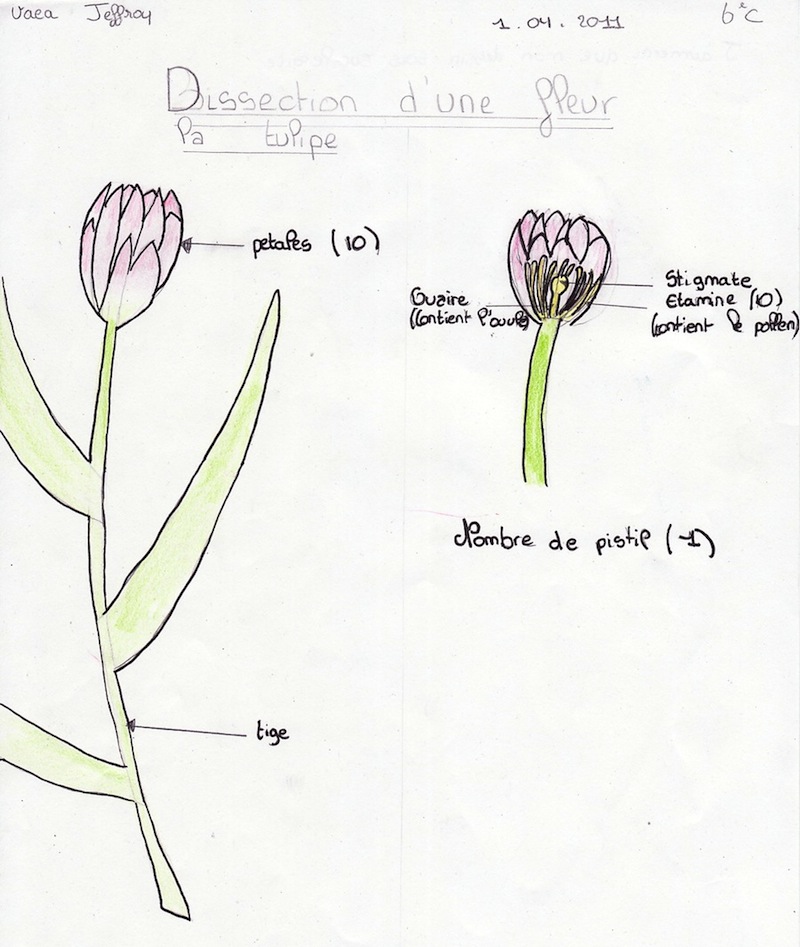 Vaea Jeffroy 1.04.2011 6°C
Dissection d'une fleur
la tulipe
petales (10)
Stigmate
Ovaire
Etamine (10)
(Contient l'ovule)
(contient le pollen)
Nombre de pistil (1)
tige